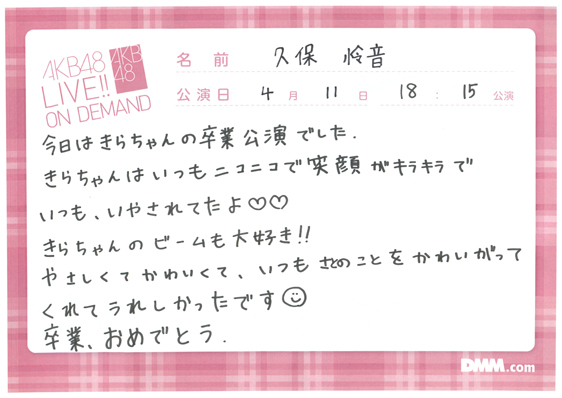 AKB48
LIVE!!
ON DEMAND
AKB
48
名前 久保 怜音
公演日 4月11日 18:15公演
今日はきらちゃんの卒業公演でした.
きらちゃんはいつもニコニコで笑顔がキラキラで
いつも、いやされてたよ♡♡
きらちゃんのビームも大好き!!
やさしくてかわいくて、いつもさとのことをかわいがって
くれてうれしかったです☺
卒業、おめでとう.
DMM.com